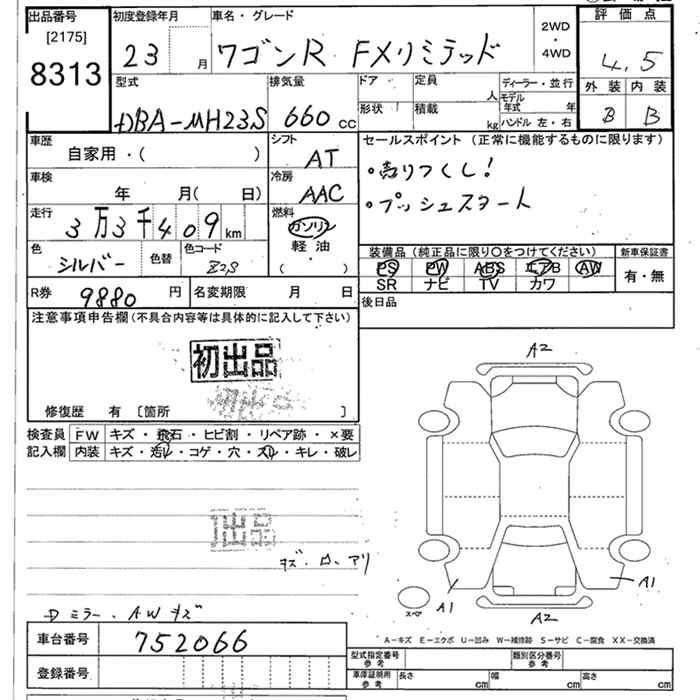 出品番号
[2175]
8313
初度登録年月
23 月
車名・グレード
ワゴンR FXリミテッド
2WD
・
4WD
評価点
4.5
外装 内装
B B
型式
DBA-MH23S
排気量
660 cc
ドア
定員
人
形状
積載
kg
ディーラー・並行
モデル年式 年
ハンドル 左・右
車歴
自家用・( )
シフト
AT
車検
年 月( 日)
冷房
AAC
走行
3万3千409km
燃料
ガソリン
軽油
( )
色
シルバー
色替
色コード
Z2S
R券
9880円
名変期限 月 日
セールスポイント (正常に機能するものに限ります)
・売りつくし!
・プッシュスタート
装備品 (純正品に限り○をつけてください)
PS PW ABS エアB AW
SR ナビ TV カワ
新車保証書
有・無
後日品
注意事項申告欄(不具合内容等は具体的に記入して下さい)
初出品
修復歴 有 [箇所 ]
検査員 FW キズ・飛石・ヒビ割・リペア跡・×要
記入欄 内装 キズ・汚レ・コゲ・穴・スレ・キレ・破レ
初出品
キズ・ロ、アリ
Dミラー、AWキズ
A2
A1
A1
A2
スペア
A-キズ E-エクボ U-凹み W-補修跡 S-サビ C-腐食 XX-交換済
車台番号
752066
登録番号
型式指定番号
参考
類別区分番号
参考
車庫証明用
参考
長さ cm
幅 cm
高さ cm